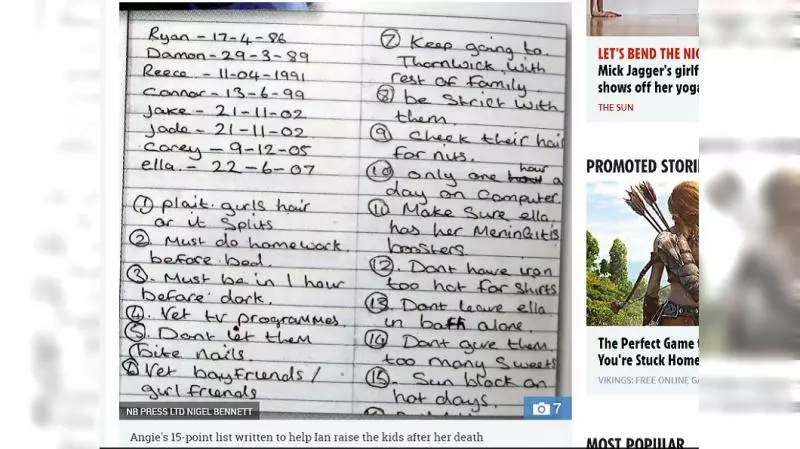 Ryan - 17-4-86
Damon - 29-3-89
Reece - 11-04-1991
Connor - 13-6-99
Jake - 21-11-02
Jade - 21-11-02
Corey - 9-12-05
ella. - 22-6-07
① plait girls hair
or it splits
② Must do homework
before bed.
③. Must be in 1 hour
before dark.
④. Vet tv programmes.
⑤. Dont let them
bite nails.
⑥ Vet boyfriends /
girl friends
⑦ Keep going to
Thornwick with
rest of family
⑧ be strict with
them.
⑨ check their hair
for nits.
⑩ only one hour a
day on computer.
⑪ Make sure ella
has her meningitis
boosters.
⑫. Dont have iron
too hot for shirts
⑬. Dont leave ella
in bath alone.
⑭ Dont give them
too many sweets
⑮. Sun block on
hot days.
NB PRESS LTD NIGEL BENNETT
7
Angie's 15-point list written to help Ian raise the kids after her death
LET'S BEND THE NIG
Mick Jagger's girlf
shows off her yoga
THE SUN
PROMOTED STORI
The Perfect Game t
You're Stuck Home
VIKINGS: FREE ONLINE GA
MOST POPULAR